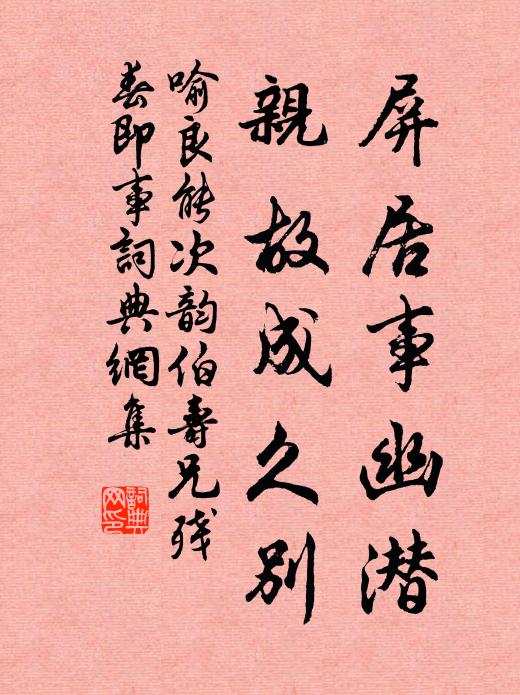 屏居事幽潜
親故成久别
喻良能次韵伯壽兄残
春即事詞典網集
詞典网印